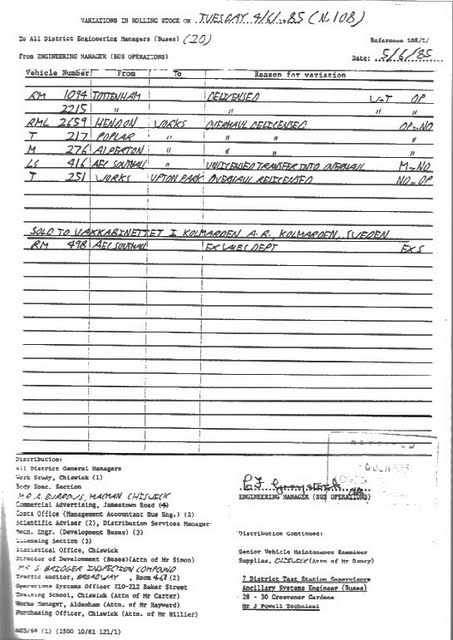 VARIATIONS IN ROLLING STOCK ON . TUESDAY 4/6/.85 (N.108)
To All District Engineering Managers (Buses) (20)
Reference 188/
From ENGINEERING MANAGER (BUS OPERATIONS)
Date: 5/6/85
Vehicle Number From To Reason for variation
RM 1094 TOTTENHAM DELICENSED U-T OP
2215 " " " "
RML 2659 HENDON WORKS OVERHAUL DELICENSED OP-NO
T 217 POPLAR " " " "
M 276 ALPERTON " " " "
LS 416 AEC SOUTHALL " UNLICENSED TRANSFER INTO OVERHAUL M-NO
T 251 WORKS UPTON PARK OVERHAUL RELICENSED NO-OP
SOLD TO VAXKABINETTET I KOLMARDEN A.B. KOLMARDEN, SWEDEN
RM 498 AEC SOUTHALL EX SALES DEPT EX S
Distribution:
All District General Managers
Work Study, Chiswick (1)
Body Spec. Section
MR A. BURROWS, CHISWICK
Commercial Advertising, Jamestown Road (4)
Costs Office (Management Accountant Bus Eng.) (2)
Scientific Adviser (2), Distribution Services Manager
Mech. Engr. (Development Buses) (3)
Licensing Section (3)
Statistical Office, Chiswick
Director of Development (Buses)(Attn of Mr Simon)
MR S. BRIDGER INSPECTION COMPOUND
Traffic Auditor, BROADWAY, Room 467 (2)
Operations Systems Officer 210-212 Baker Street
Training School, Chiswick (Attn of Mr Carter)
Works Manager, Aldenham (Attn of Mr Hayward)
Purchasing Officer, Chiswick (Attn of Mr Hillier)
(1) (2500 10/81 121/1)
ENGINEERING MANAGER (BUS OPERATIONS)
Distribution Continued:
Senior Vehicle Maintenance Examiner
Supplies, CHISWICK (Attn of Mr Dancy)
7 District Test Station Supervisors
Ancillary Systems Engineer (Buses)
28 - 30 Grosvenor Gardens
Mr J Powell Technical